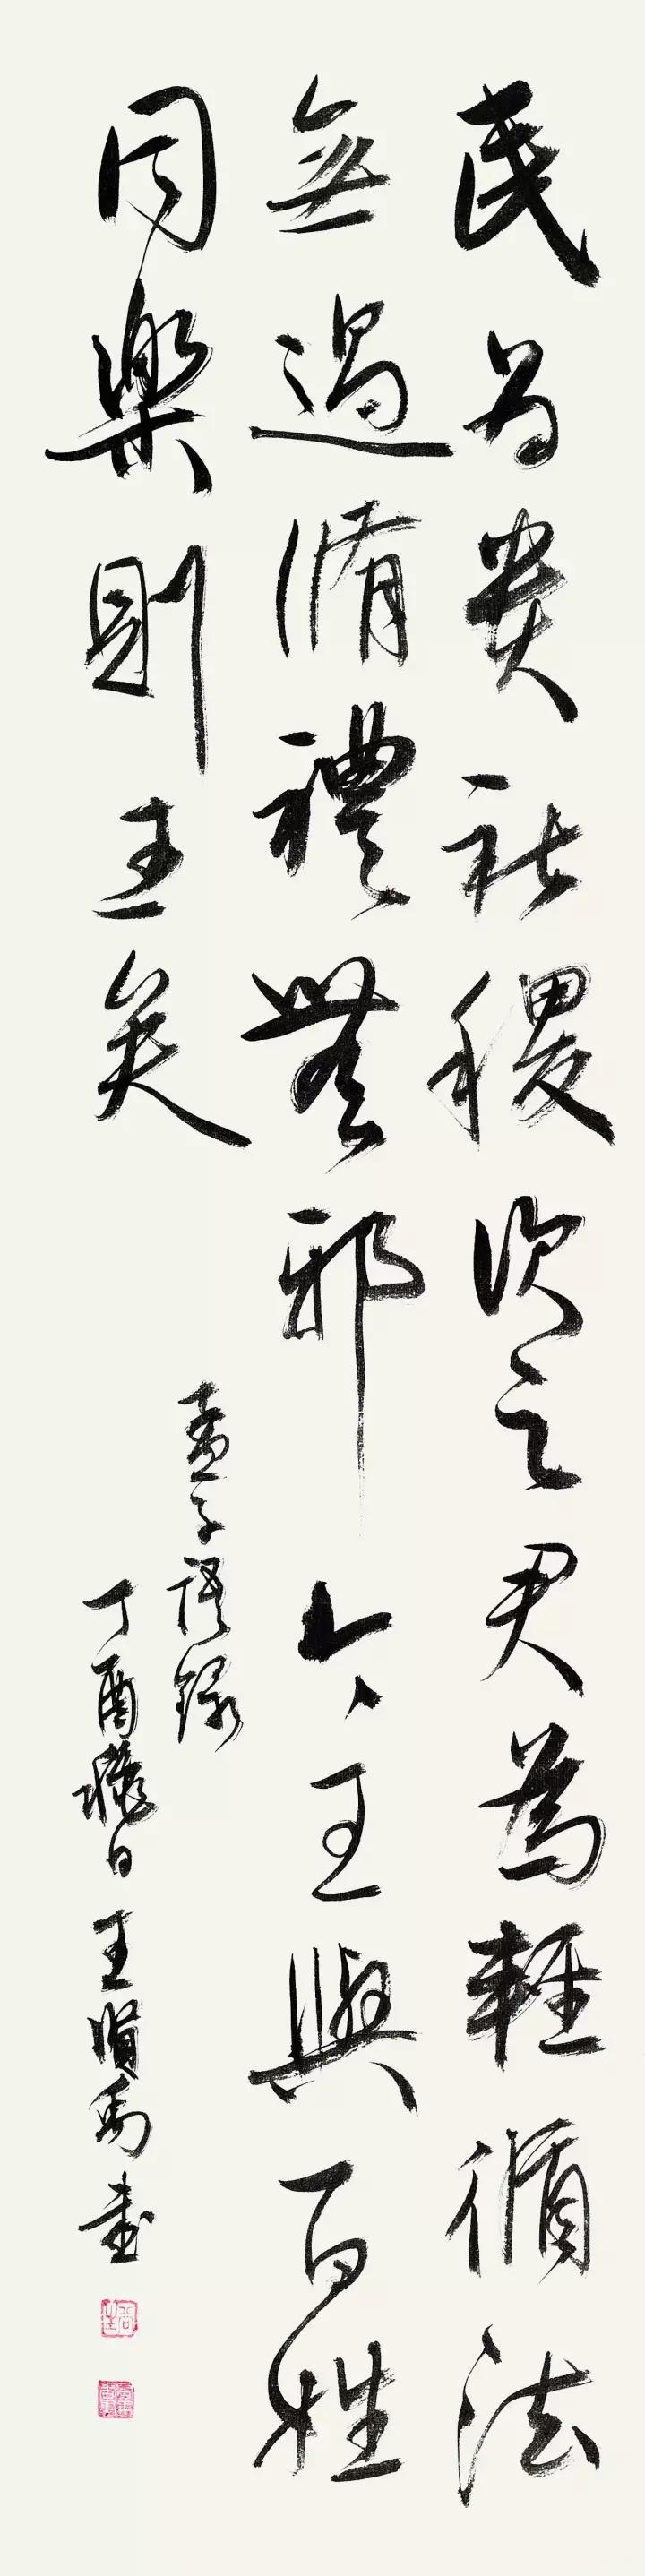 民为贵社稷次之君為輕循法
無過脩禮無邪今王與百姓
同樂則王矣
孟子語錄
丁酉穐日王禹書